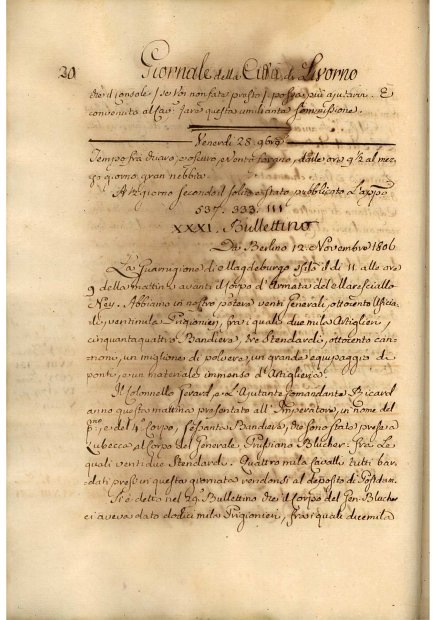 20 Giornale della Città di Livorno
il Console, se voi non fate presto
convenuto al Cav. farà questa umiliante sommissione.
Venerdì 28. 9bre
Tempo fra chiaro, e oscuro, e vento, dalle ore 9 1/2 al mez-
zo giorno gran nebbia.
A mezzo giorno secondo il solito è stato pubblicato l'app.o
537. 333. 111
XXXI. Bullettino
Da Berlino 12. Novembre 1806
La Guarnigione di Magdeburgo sfilò il dì 11. alle ore
9 della mattina avanti il corpo d'Armata del Maresciallo
Ney. Abbiamo in nostro potere venti Generali, ottocento Ufficia-
li, ventimila Prigionieri, fra i quali due mila Artiglieri,
cinquantaquattro Bandiere, tre Stendardi, ottocento can-
noni, un milione di polvere, un grande equipaggio di
ponti, e un materiale immenso d'Artiglieria.
Il Colonnello Gerard, e l'Ajutante Comandante Ricard
anno questa mattina presentato all'Imperatore, in nome del
p.mo, e del 4. Corpo, sessanta Bandiere, che sono state prese a
Lubecca al Corpo del Generale Prussiano Blucher. Fra le
quali ventidue Stendardi. Quattro mila cavalli tutti bar-
dati presi in questa giornata vendonsi al deposito di Potsdam.
Si è detto nel 29. Bullettino che il Corpo del Gen. Blucher
ci aveva dato dodici mila Prigionieri, fra i quali diecimila